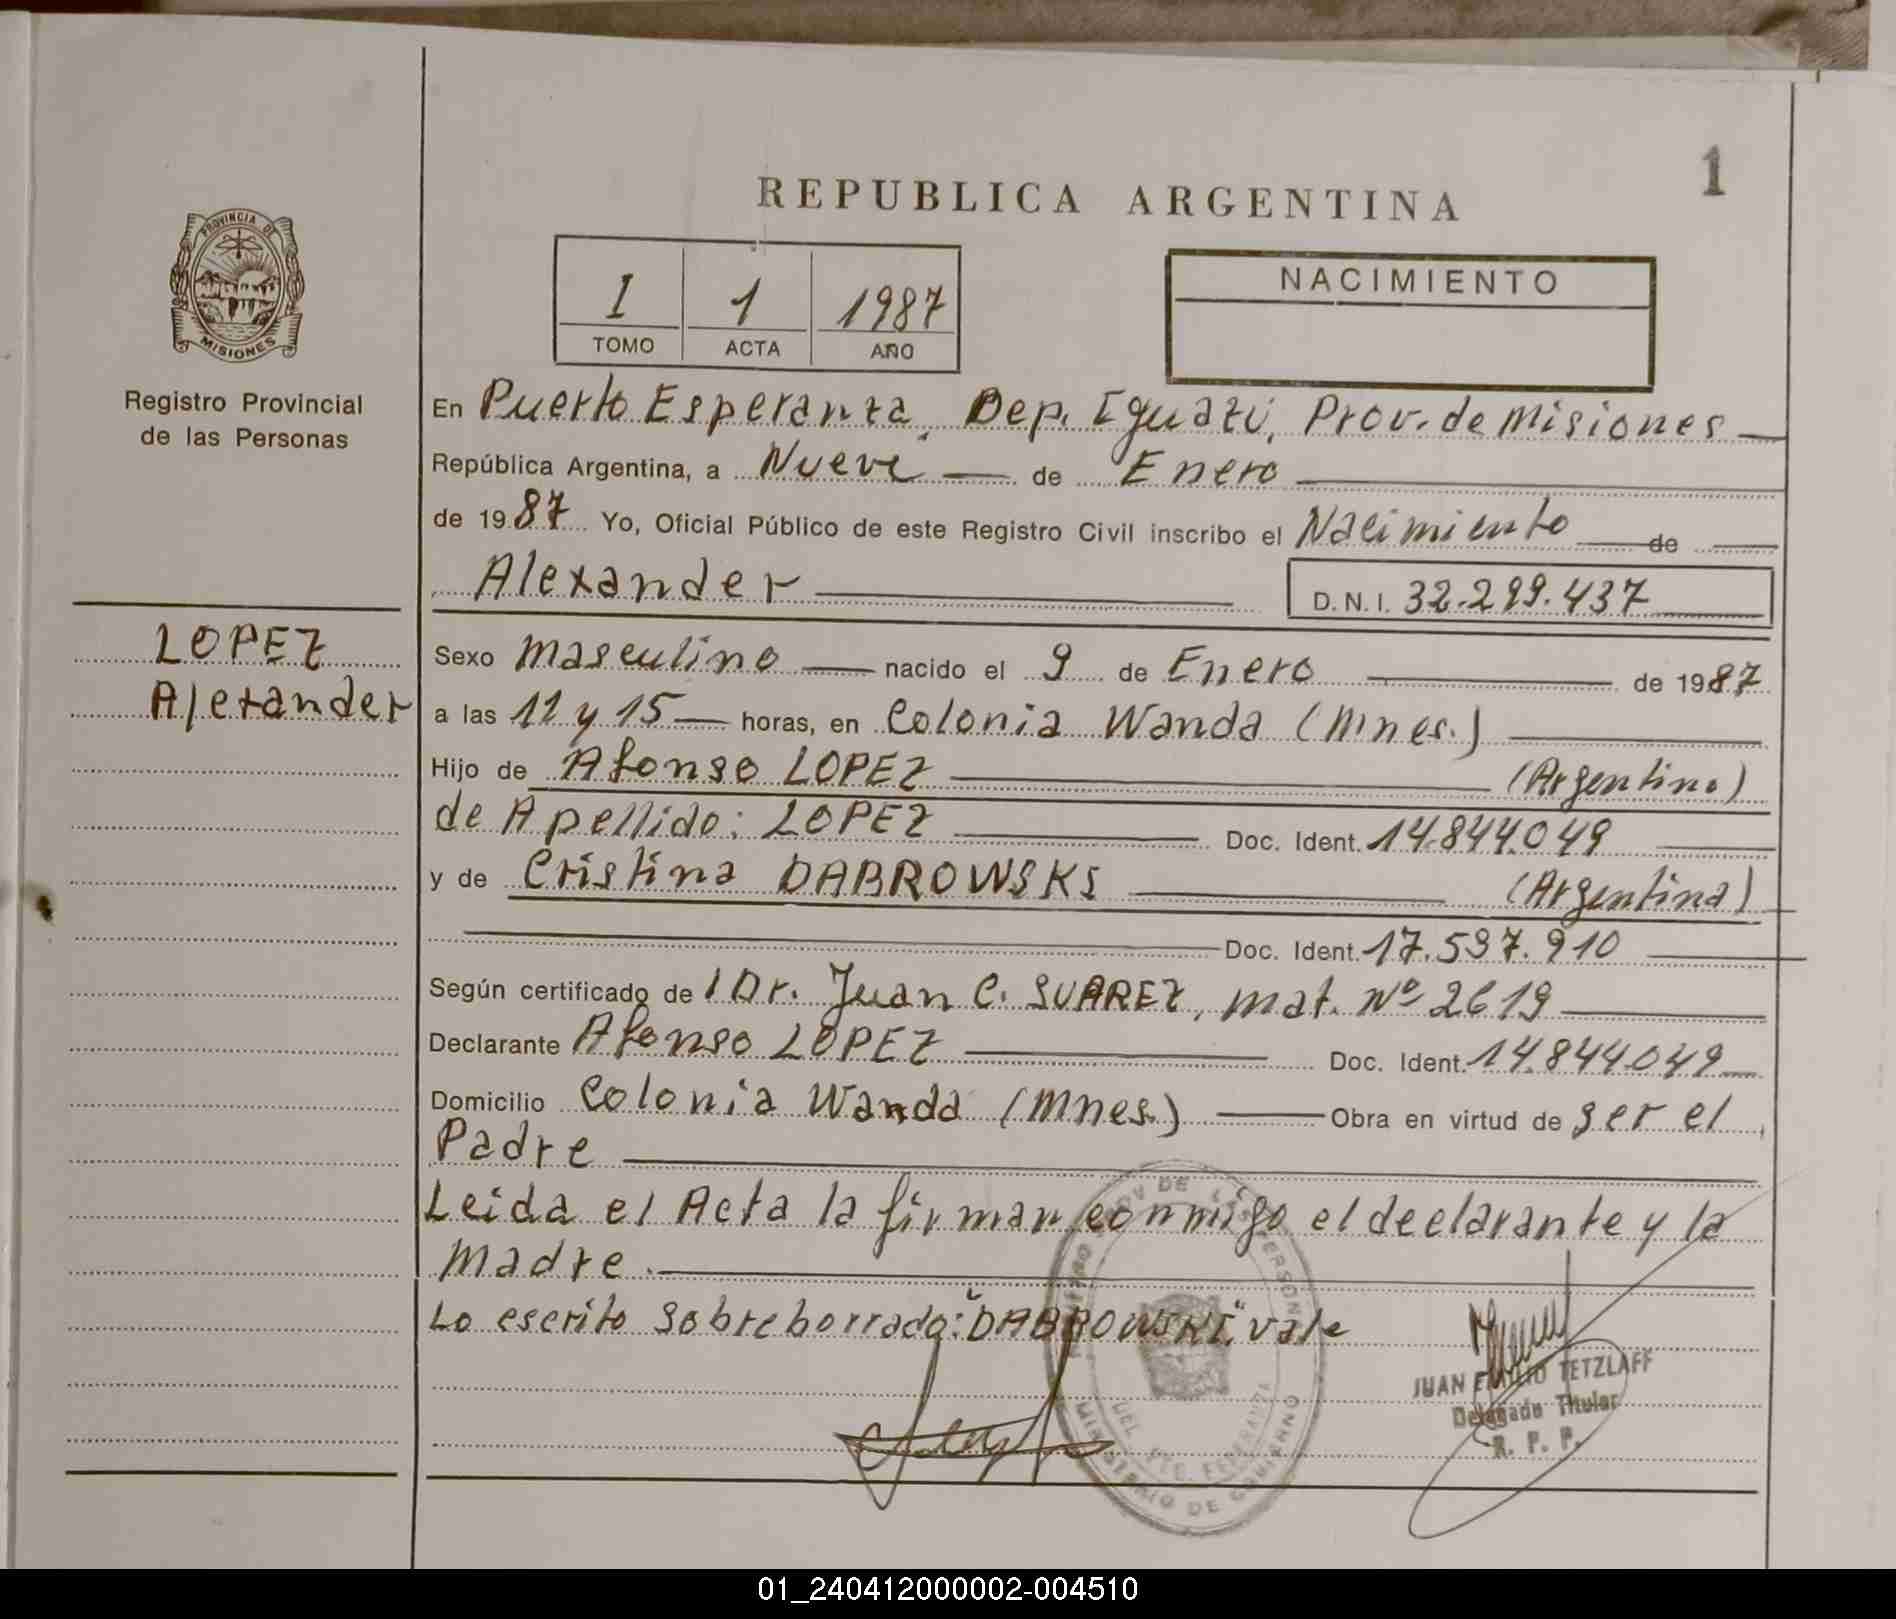 1
REPUBLICA ARGENTINA
PROVINCIA DE
MISIONES
Registro Provincial
de las Personas
I 1 1987
TOMO ACTA AÑO
NACIMIENTO
En Puerto Esperanza, Dep. Iguazú, Prov. de Misiones
República Argentina, a Nueve de Enero
de 1987 Yo, Oficial Público de este Registro Civil inscribo el Nacimiento de
Alexander D.N.I. 32.299.437
LOPEZ
Alexander
Sexo Masculino nacido el 9 de Enero de 1987
a las 11 y 15 horas, en Colonia Wanda (Mnes.)
Hijo de Afonso LOPEZ (Argentino)
de Apellido: LOPEZ Doc. Ident. 14.844.049
y de Cristina DABROWSKI (Argentina)
Doc. Ident. 17.537.910
Según certificado del Dr. Juan C. SUAREZ, mat. Nº 2619
Declarante Afonso LOPEZ Doc. Ident. 14.844.049
Domicilio Colonia Wanda (Mnes.) Obra en virtud de ser el
Padre
Leida el Acta la firman conmigo el declarante y la
madre.
Lo escrito sobreborrado: "DABROWSKI", vale
JUAN EMILIO TETZLAFF
Delegado Titular
R. P. P.
MINISTERIO DE GOBIERNO
01_240412000002-004510